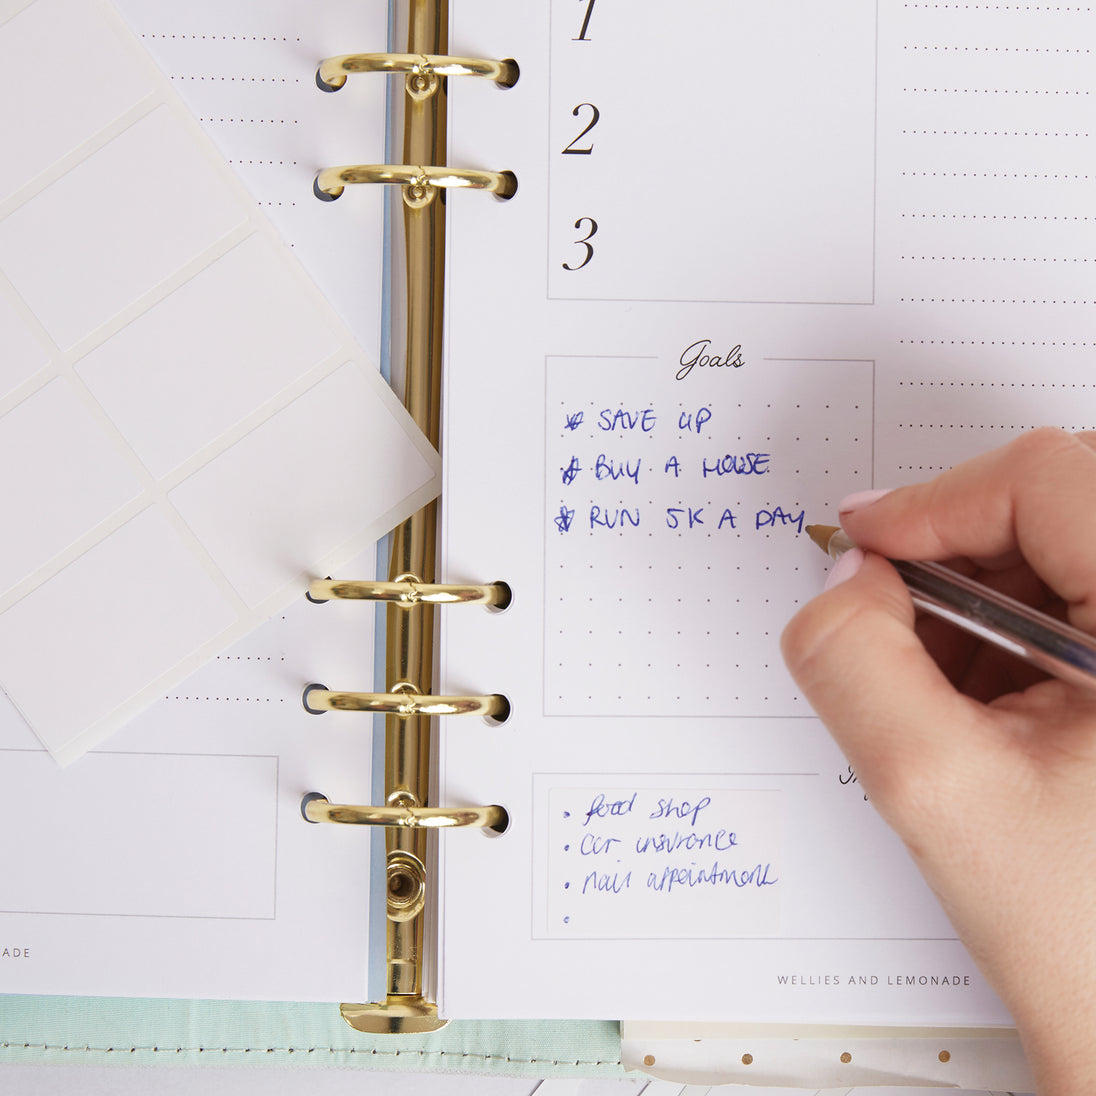 1
2
3
Goals
SAVE UP
BUY A HOUSE
RUN 5K A DAY
food shop
car insurance
nail appointment
ADE
WELLIES AND LEMONADE